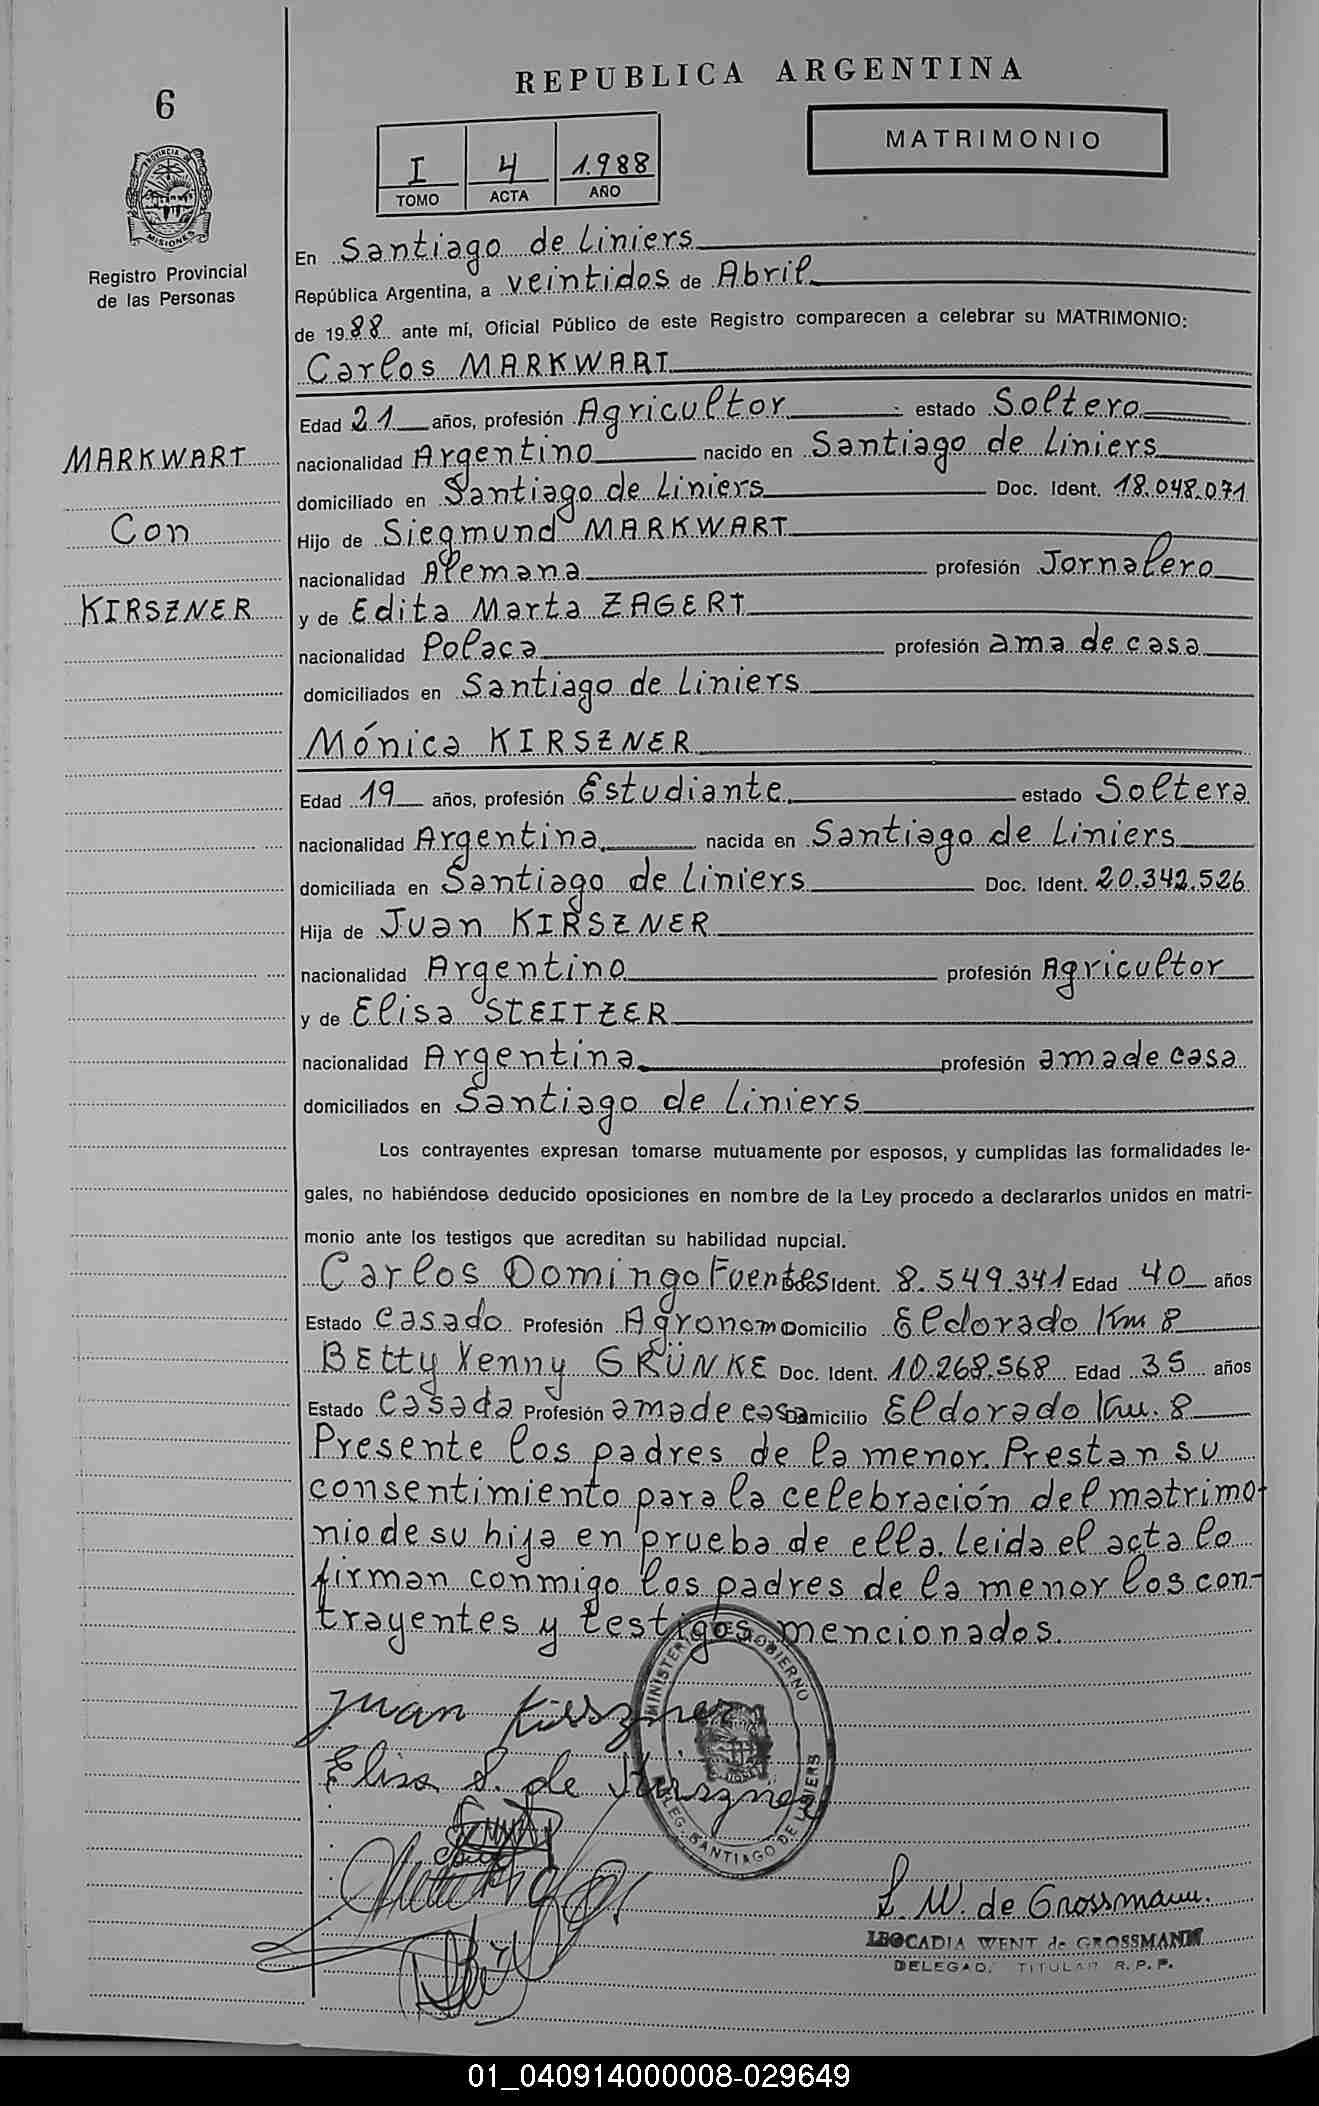 REPUBLICA ARGENTINA
6
MATRIMONIO
I 4 1.988
TOMO ACTA AÑO
PROVINCIA DE MISIONES
Registro Provincial
de las Personas
En Santiago de Liniers
República Argentina, a veintidos de Abril
de 1988 ante mí, Oficial Público de este Registro comparecen a celebrar su MATRIMONIO:
Carlos MARKWART
Edad 21 años, profesión Agricultor estado Soltero
MARKWART
nacionalidad Argentino nacido en Santiago de Liniers
domiciliado en Santiago de Liniers Doc. Ident. 18.048.071
Con
Hijo de Siegmund MARKWART
nacionalidad Alemana profesión Jornalero
KIRSZNER
y de Edita Marta ZAGERT
nacionalidad Polaca profesión ama de casa
domiciliados en Santiago de Liniers
Mónica KIRSZNER
Edad 19 años, profesión Estudiante estado Soltera
nacionalidad Argentina nacida en Santiago de Liniers
domiciliada en Santiago de Liniers Doc. Ident. 20.342.526
Hija de Juan KIRSZNER
nacionalidad Argentino profesión Agricultor
y de Elisa STEITZER
nacionalidad Argentina profesión ama de casa
domiciliados en Santiago de Liniers
Los contrayentes expresan tomarse mutuamente por esposos, y cumplidas las formalidades le-
gales, no habiéndose deducido oposiciones en nombre de la Ley procedo a declararlos unidos en matri-
monio ante los testigos que acreditan su habilidad nupcial.
Carlos Domingo Fuentes Doc. Ident. 8.549.341 Edad 40 años
Estado casado Profesión Agronomo Domicilio Eldorado Km 8
BEtty Yenny GRÜNKE Doc. Ident. 10.268.568 Edad 35 años
Estado Casada Profesión ama de casa Domicilio Eldorado Km. 8
Presente los padres de la menor. Prestan su
consentimiento para la celebración del matrimo-
nio de su hija en prueba de ella. Leida el acta lo
firman conmigo los padres de la menor los con-
trayentes y testigos mencionados.
MINISTERIO DE GOBIERNO
DELEG. SANTIAGO DE LINIERS
Juan Kirszner
Elisa S. de Kirszner
L. W. de Grossmann.
LEOCADIA WENT de GROSSMANN
DELEGAD. TITULAR R.P.P.
01_040914000008-029649